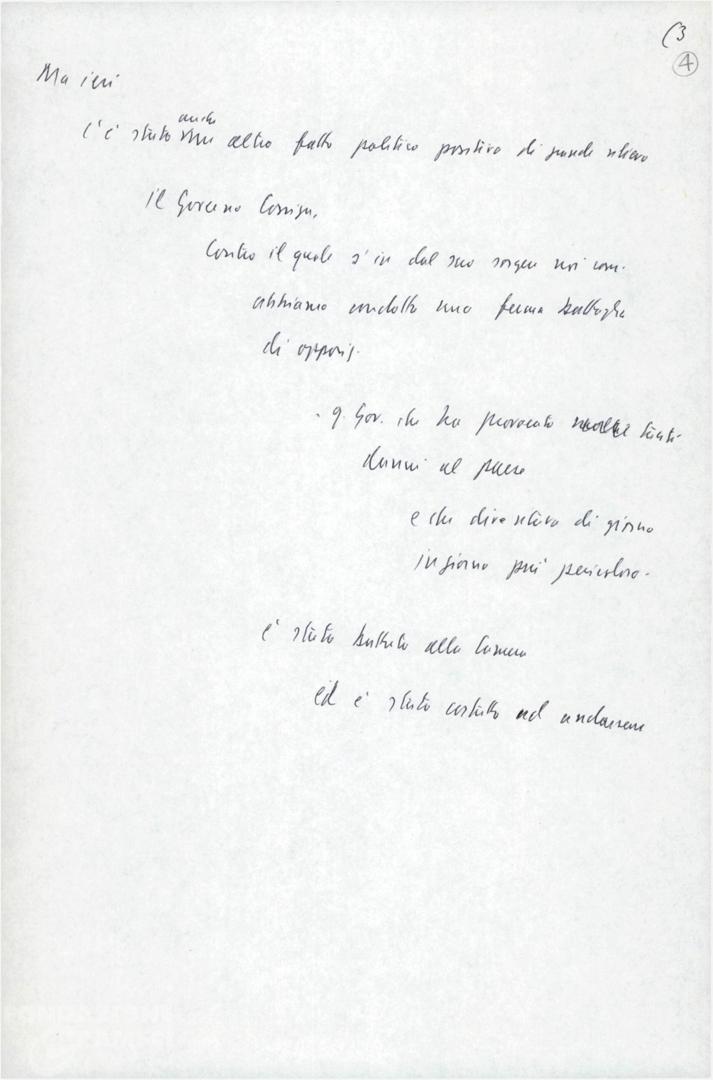 (3
4
Ma ieri
c'è stato anche un altro fatto politico positivo di grande rilievo
il Governo Cossiga,
Contro il quale s'in dal suo sorgere noi com.
abbiamo condotto una ferma battaglia
di opposiz.
- q. Gov. che ha provocato tanti
danni al paese
e che diventava di giorno
in giorno più pericoloso -
è stato battuto alla Camera
ed è stato costretto ad andarsene